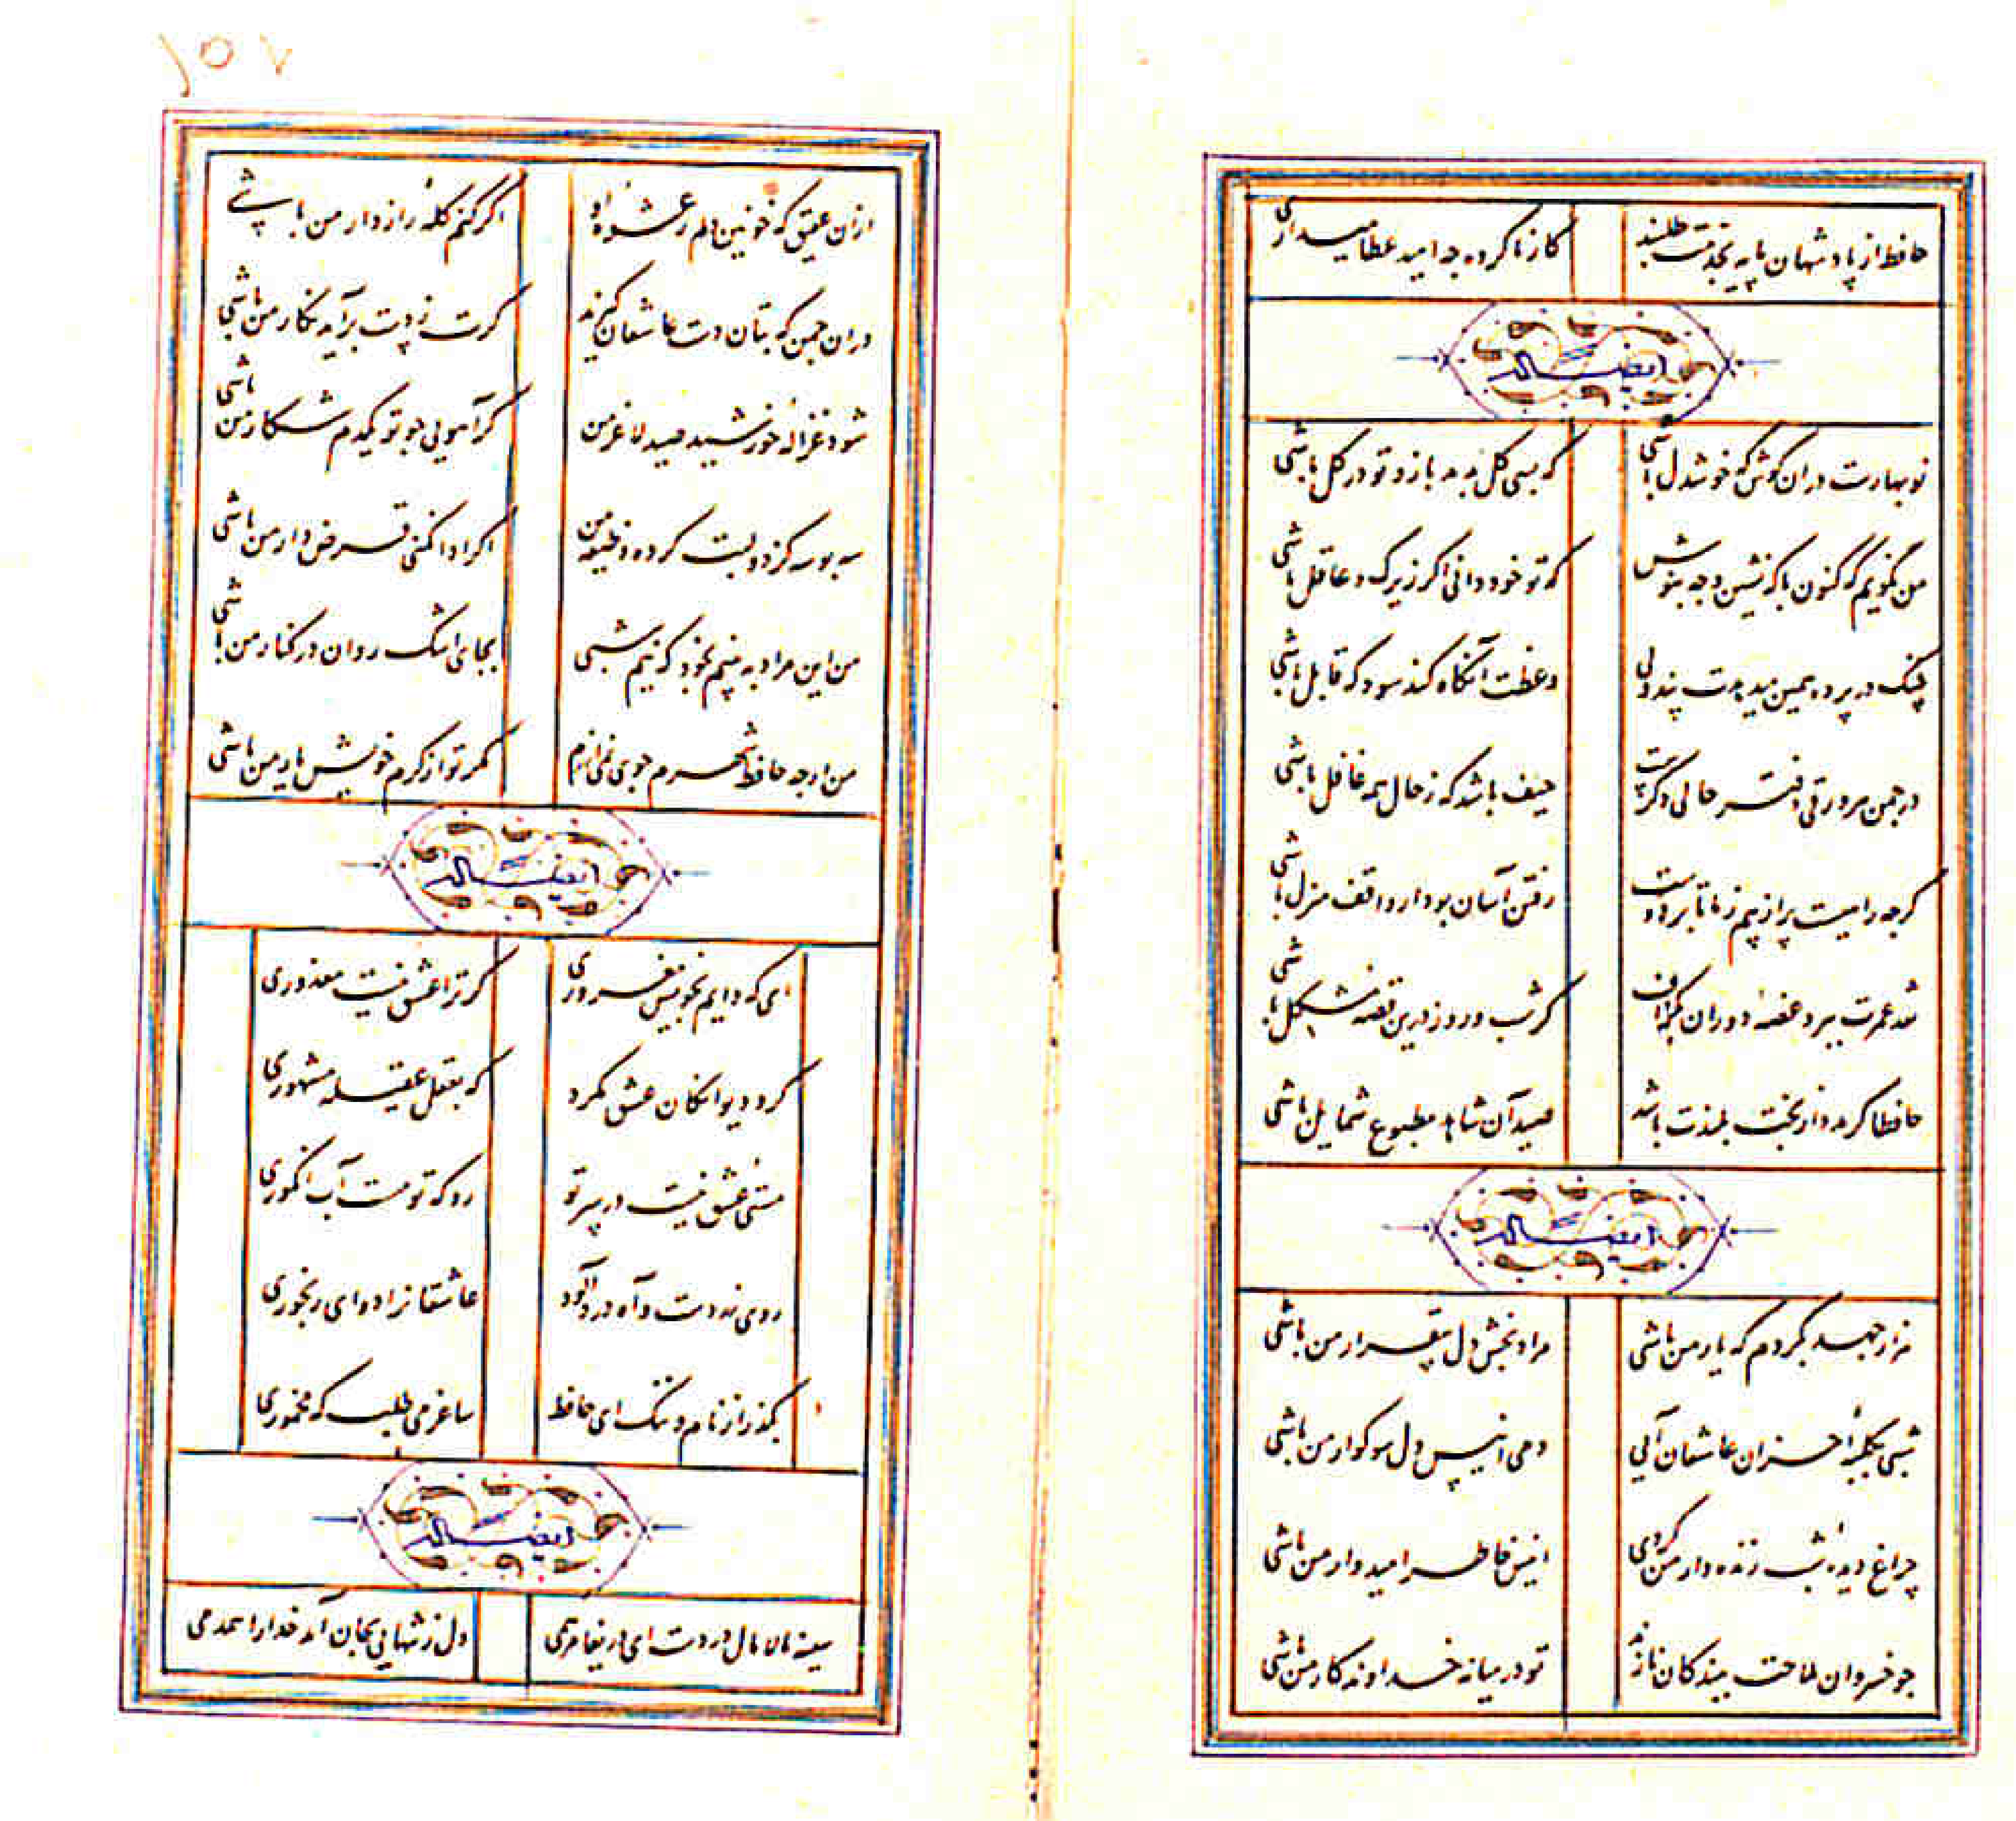 حافظ از پادشهان پایه بخدمت طلبند کار ناکرده چه امید عطا میداری
ایضاله
نوبهارست دران کوش که خوشدل باشی که بسی کل بدمد باز و تو در کل باشی
من نکویم که کنون با که نشین و چه بنوش که تو خود دانی اکر زیرک و عاقل باشی
چنک در پرده همین میدهدت پند ولی وعظت آنکاه کند سود که قابل باشی
در چمن هر ورقی دفتر حالی دکرست حیف باشد که ز حال همه غافل باشی
کرچه راهیست پر از بیم ز ما تا بر دوست رفتن آسان بود ار واقف منزل باشی
نقد عمرت ببرد غصهٔ دوران بکزاف کر شب و روز درین قصه مشکل باشی
حافظا کر مدد از بخت بلندت باشد صید آن شاهد مطبوع شمایل باشی
ایضاله
هزار جهد بکردم که یار من باشی مراد بخش دل بیقرار من باشی
شبی بکلبهٔ احزان عاشقان آیی دمی انیس دل سوکوار من باشی
چراغ دیدهٔ شب زنده دار من کردی انیس خاطر امیدوار من باشی
چو خسروان ملاحت ببندکان نازند تو در میانه خداوندکار من باشی
۱۵۷
ازان عقیق که خونین دلم ز عشوهٔ او اکر کنم کلهٔ رازدار من باشی
دران چمن که بتان دست عاشقان کیرند کرت ز دست برآید نکار من باشی
شود غزالهٔ خورشید صید لاغر من کر آهویی چو تو یکدم شکار من باشی
سه بوسه کز دو لبت کرده وظیفه من اکر ادا نکنی قرض دار من باشی
من این مراد به بینم بخود که نیم شبی بجای اشک روان در کنار من باشی
من ارچه حافظ شهرم جوی نمی ارزم مکر تو از کرم خویش یار من باشی
ایضاله
ای که دایم بخویش مغروری کر ترا عشق نیست معذوری
کرد دیوانکان عشق مکرد که بعقل عقیله مشهوری
مستی عشق نیست در سر تو رو که تو مست آب انکوری
روی زردست و آه دردآلود عاشقانرا دوای رنجوری
بکذر از نام و ننک ای حافظ ساغر می طلب که مخموری
ایضاله
سینه مالامال دردست ای دریغا مرهمی دل ز تنهایی بجان آمد خدارا همدمی